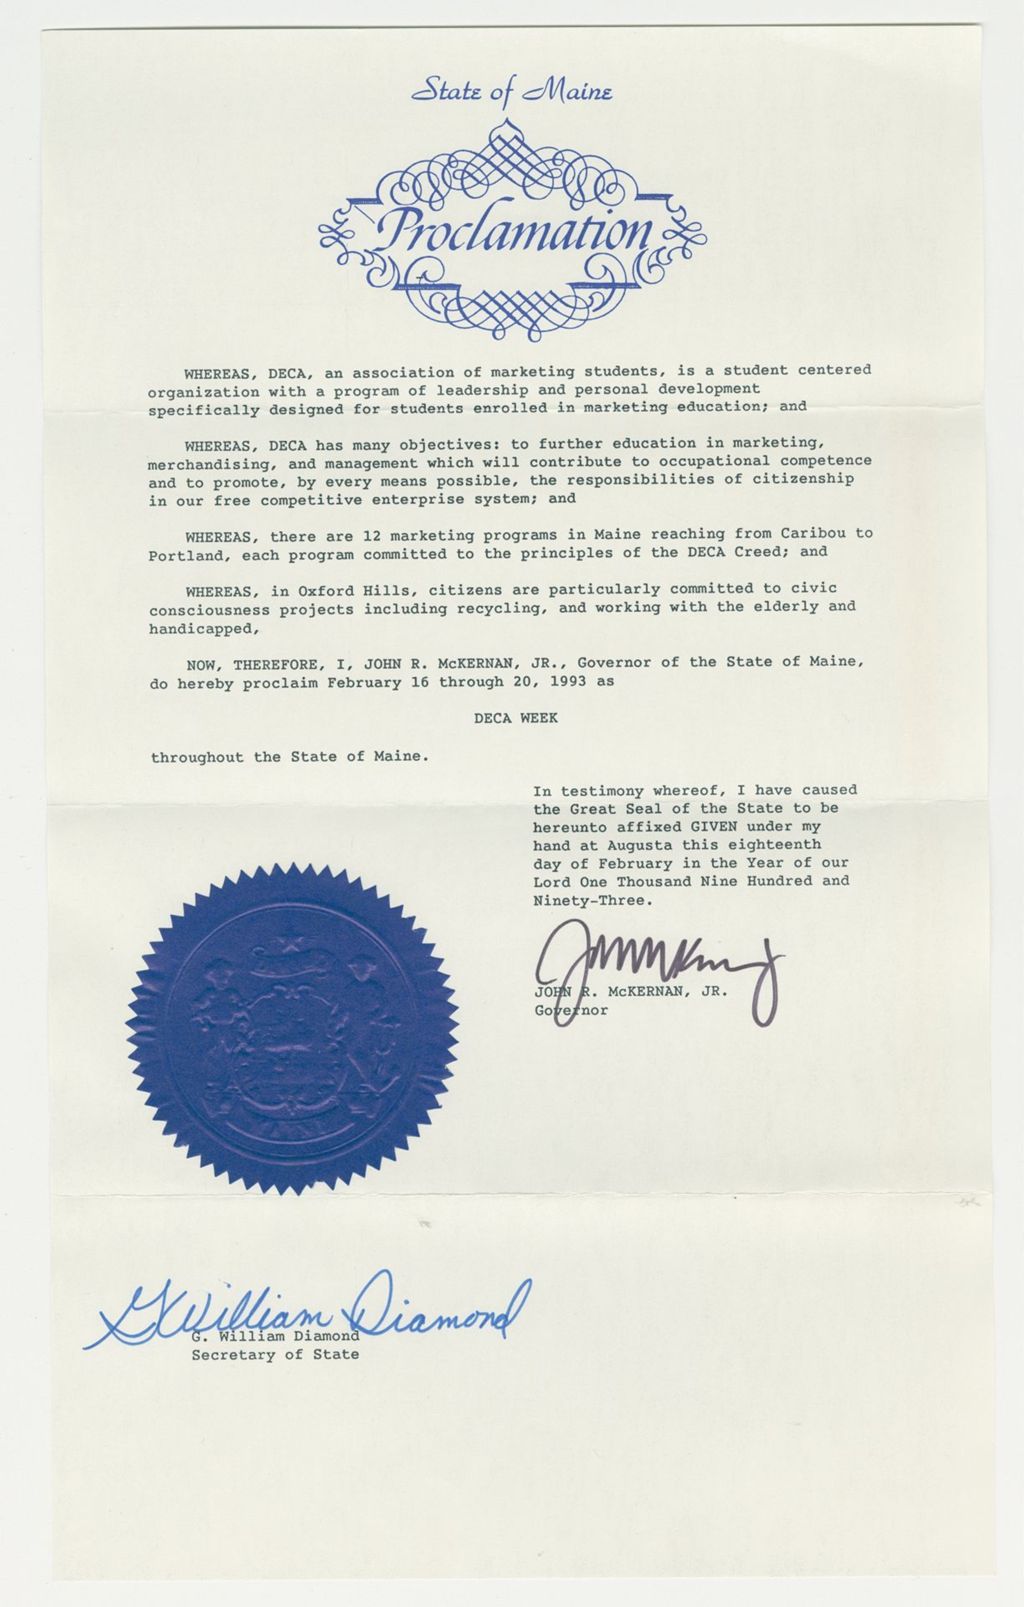 State of Maine
Proclamation
WHEREAS, DECA, an association of marketing students, is a student centered
organization with a program of leadership and personal development
specifically designed for students enrolled in marketing education; and
WHEREAS, DECA has many objectives: to further education in marketing,
merchandising, and management which will contribute to occupational competence
and to promote, by every means possible, the responsibilities of citizenship
in our free competitive enterprise system; and
WHEREAS, there are 12 marketing programs in Maine reaching from Caribou to
Portland, each program committed to the principles of the DECA Creed; and
WHEREAS, in Oxford Hills, citizens are particularly committed to civic
consciousness projects including recycling, and working with the elderly and
handicapped,
NOW, THEREFORE, I, JOHN R. McKERNAN, JR., Governor of the State of Maine,
do hereby proclaim February 16 through 20, 1993 as
DECA WEEK
throughout the State of Maine.
In testimony whereof, I have caused
the Great Seal of the State to be
hereunto affixed GIVEN under my
hand at Augusta this eighteenth
day of February in the Year of our
Lord One Thousand Nine Hundred and
Ninety-Three.
JOHN R. McKERNAN, JR.
Governor
MAINE
G William Diamond
G. William Diamond
Secretary of State